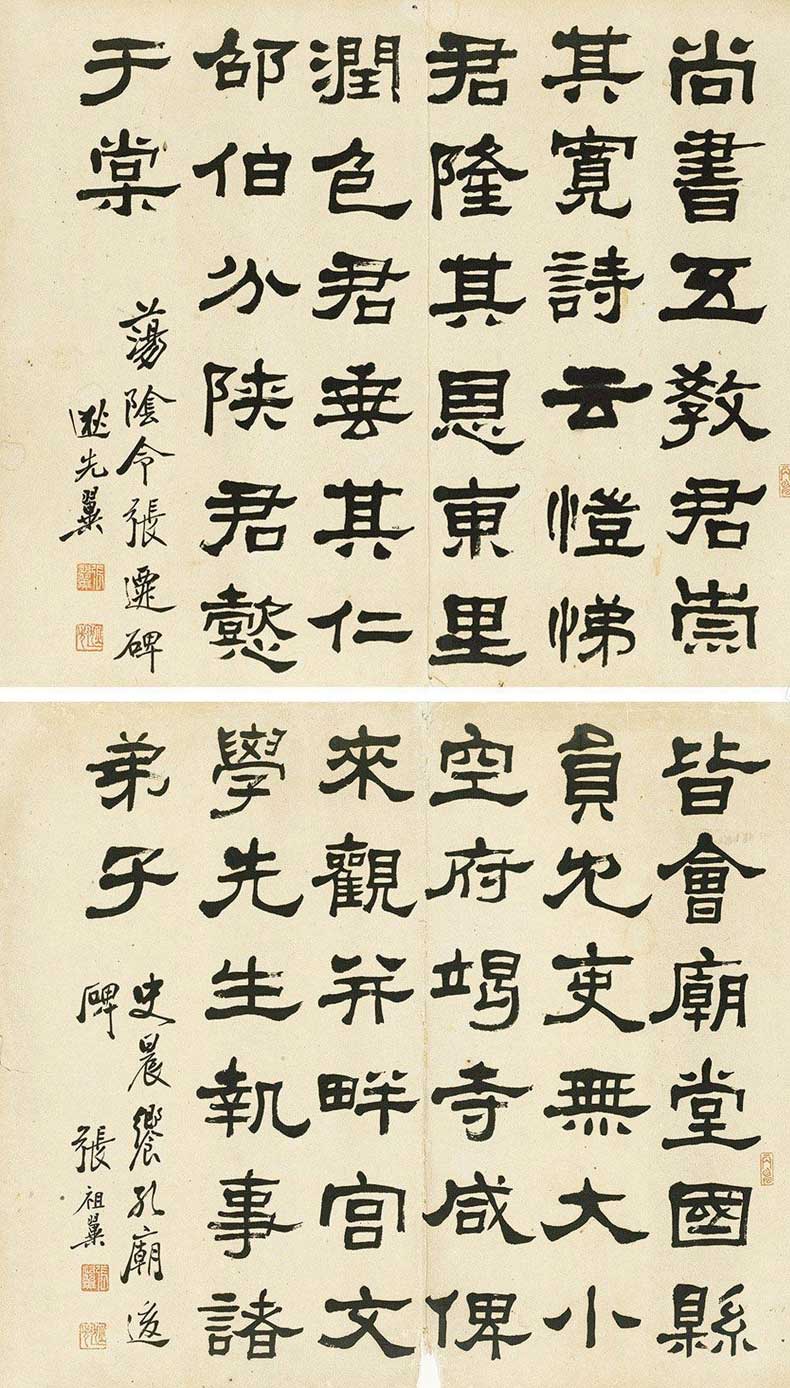 尚書五教君崇
其寬詩云愷悌
君隆其恩東里
潤色君垂其仁
邵伯分陝君懿
于棠
蕩陰令張遷碑
逖先翼
皆會廟堂國縣
員冗吏無大小
空府竭寺咸俾
來觀并畔宮文
學先生執事諸
弟子
史晨饗孔廟後
碑
張祖翼